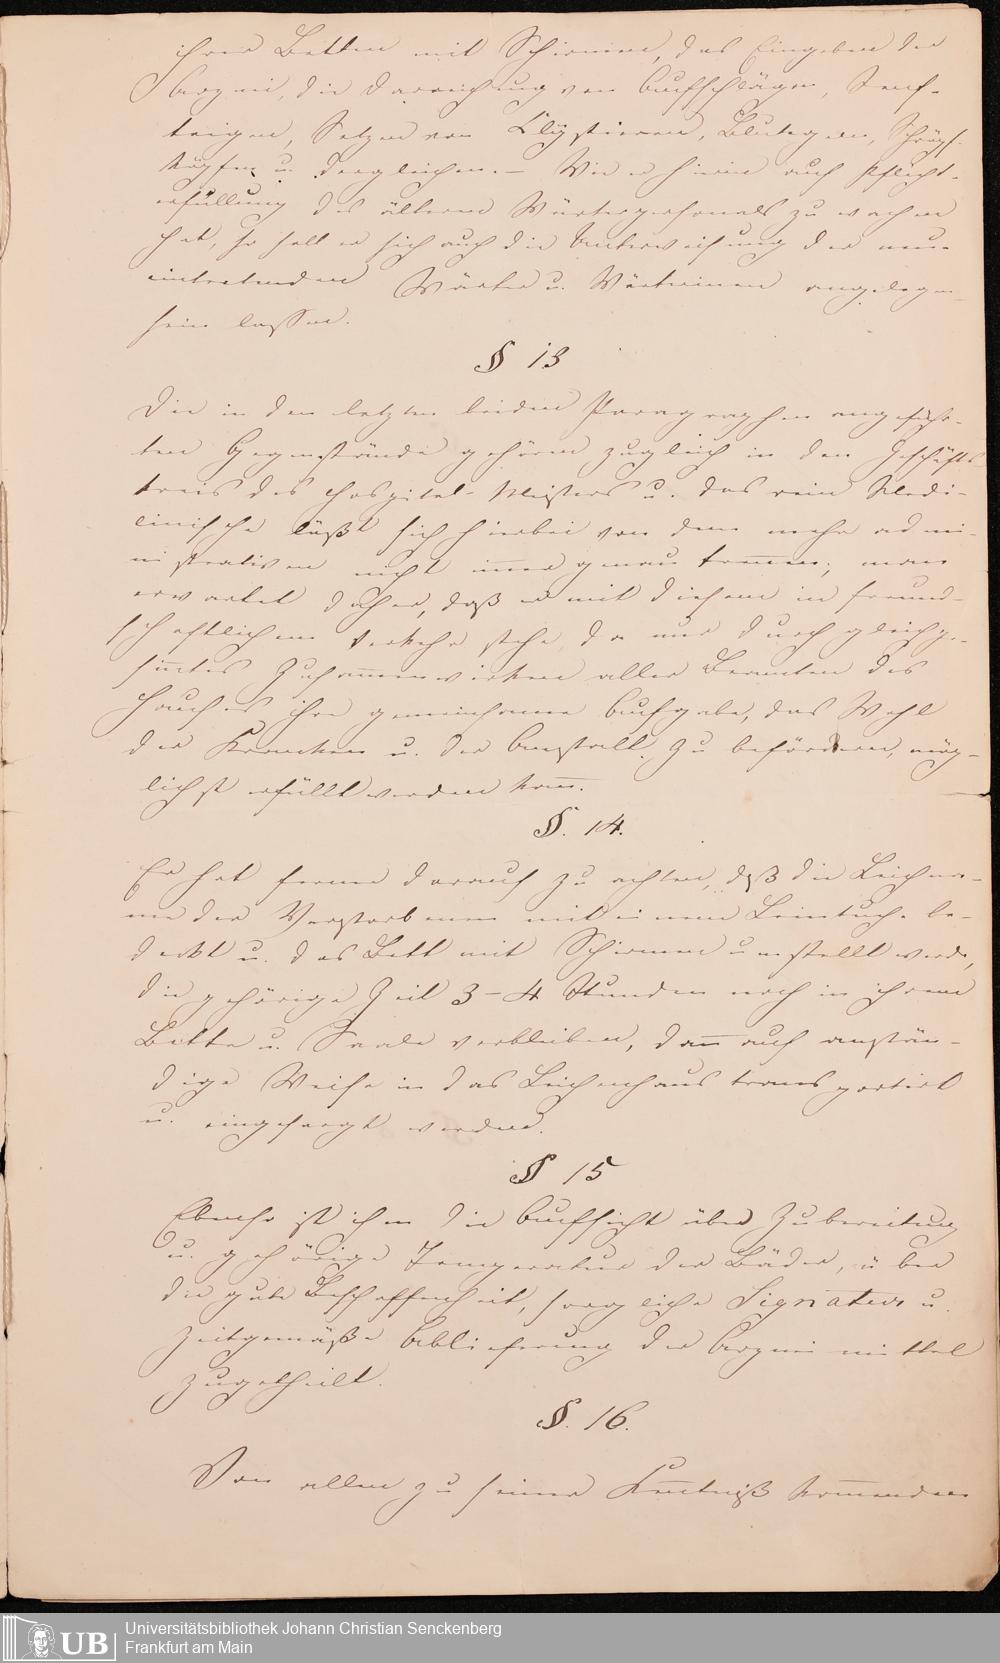 ihrer Betten mit Schirmen, das Eingeben der
Arznei, die Darreichung von Aufschlägen, Senf-
teigen, Setzen von Clÿstieren, Blutegeln, Schröpf-
köpfen u. dergleichen. – Wie er hierin auch Pflicht-
erfüllung des älteren Wärterpersonals zu wachen
hat, so soll er sich auch die Unterweisung der neu-
eintretenden Wärter u. Wärterinen angelegen
sein lassen.
§ 13
Die in den letzten beiden Paragraphen angeführ-
ten Gegenstände gehören zugleich in den Geschäfts-
kreis des Hospital-Meisters u. das rein Medi-
cinische läßt sich hierbei von dem mehr admi-
nistrativen nicht imer genau trennen; man
erwartet daher, daß er mit diesem in freund-
schaftlichem Verkehr stehe, da nur durch gleichge-
sinntes Zusamenwirken aller Beamten des
Hauses ihre gemeinsame Aufgabe, das Wohl
der Kranken u. der Anstalt zu befördern, mög-
lichst erfüllt werden kann.
§. 14.
Er hat ferner darauf zu achten, daß die Leichna-
me der Verstorbenen mit einem Leintuche be-
deckt u. das Bett mit Schirmen umstellt werde,
die gehörige Zeit 3–4 Stunden noch in ihrem
Bette u. Saale verbleiben, dann auf anstän-
dige Weise in das Leichenhaus transportirt
u. eingesargt werden.
§ 15
Ebenso ist ihm die Aufsicht über Zubereitung
u. gehörige Temperatur der Bäder, über
die gute Beschaffenheit, sorgliche Signatur u.
zeitgemäße Ablieferung der Arzneimittel
zugetheilt.
§. 16.
Von allen zu seiner Kenntniß komenden
UB
Universitätsbibliothek Johann Christian Senckenberg
Frankfurt am Main